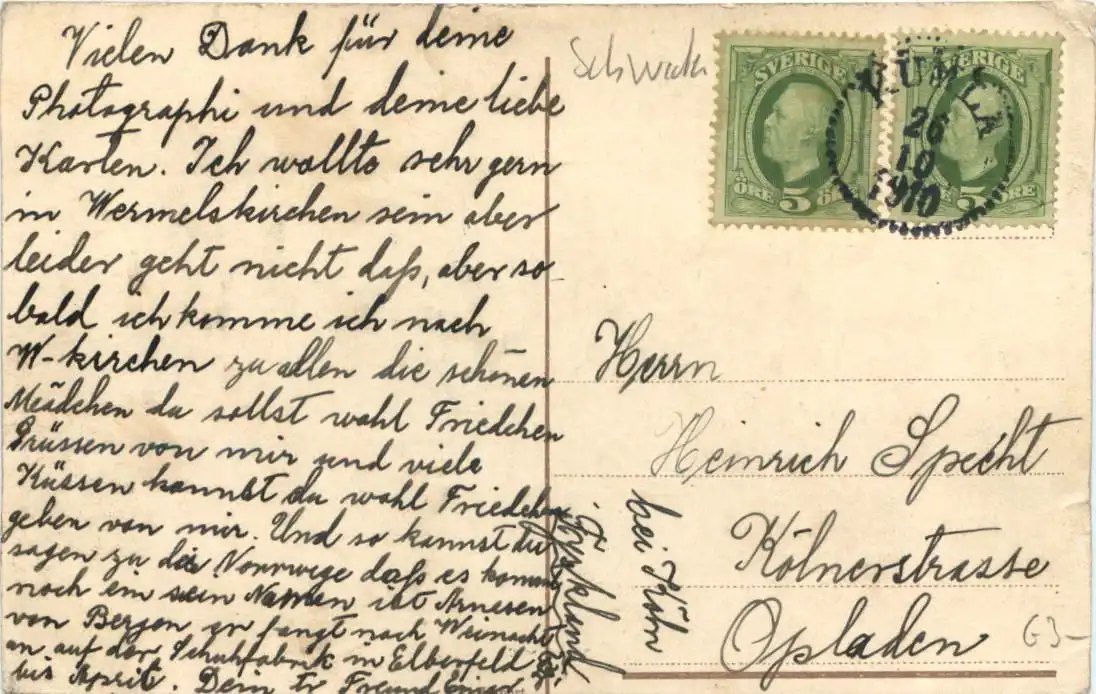 Vielen Dank für deine
Photographi und deine liebe
Karten. Ich wollte sehr gern
in Wermelskirchen sein aber
leider geht nicht daß, aber so-
bald ich komme ich nach
W-kirchen zu allen die schönen
Mädchen du sollst wohl Friedchen
Grüssen von mir und viele
Küssen kannst du wohl Friedchen
geben von mir. Und so kannst du
sagen zu die Norrwege daß es kommt
noch ein sein Namen ist Arnesen
von Bergen er fangt nach Weinacht
an auf der Schuhfabrik in Elberfeld
bis April. Dein tr Freund Einar
SVERIGE
ÖRE 5 ÖRE
SVERIGE
5 ÖRE
KUMLA
26
10
1910
Herrn
Heinrich Specht
Kölnerstrasse
Opladen
bei Köhn
Tyskland
G3-